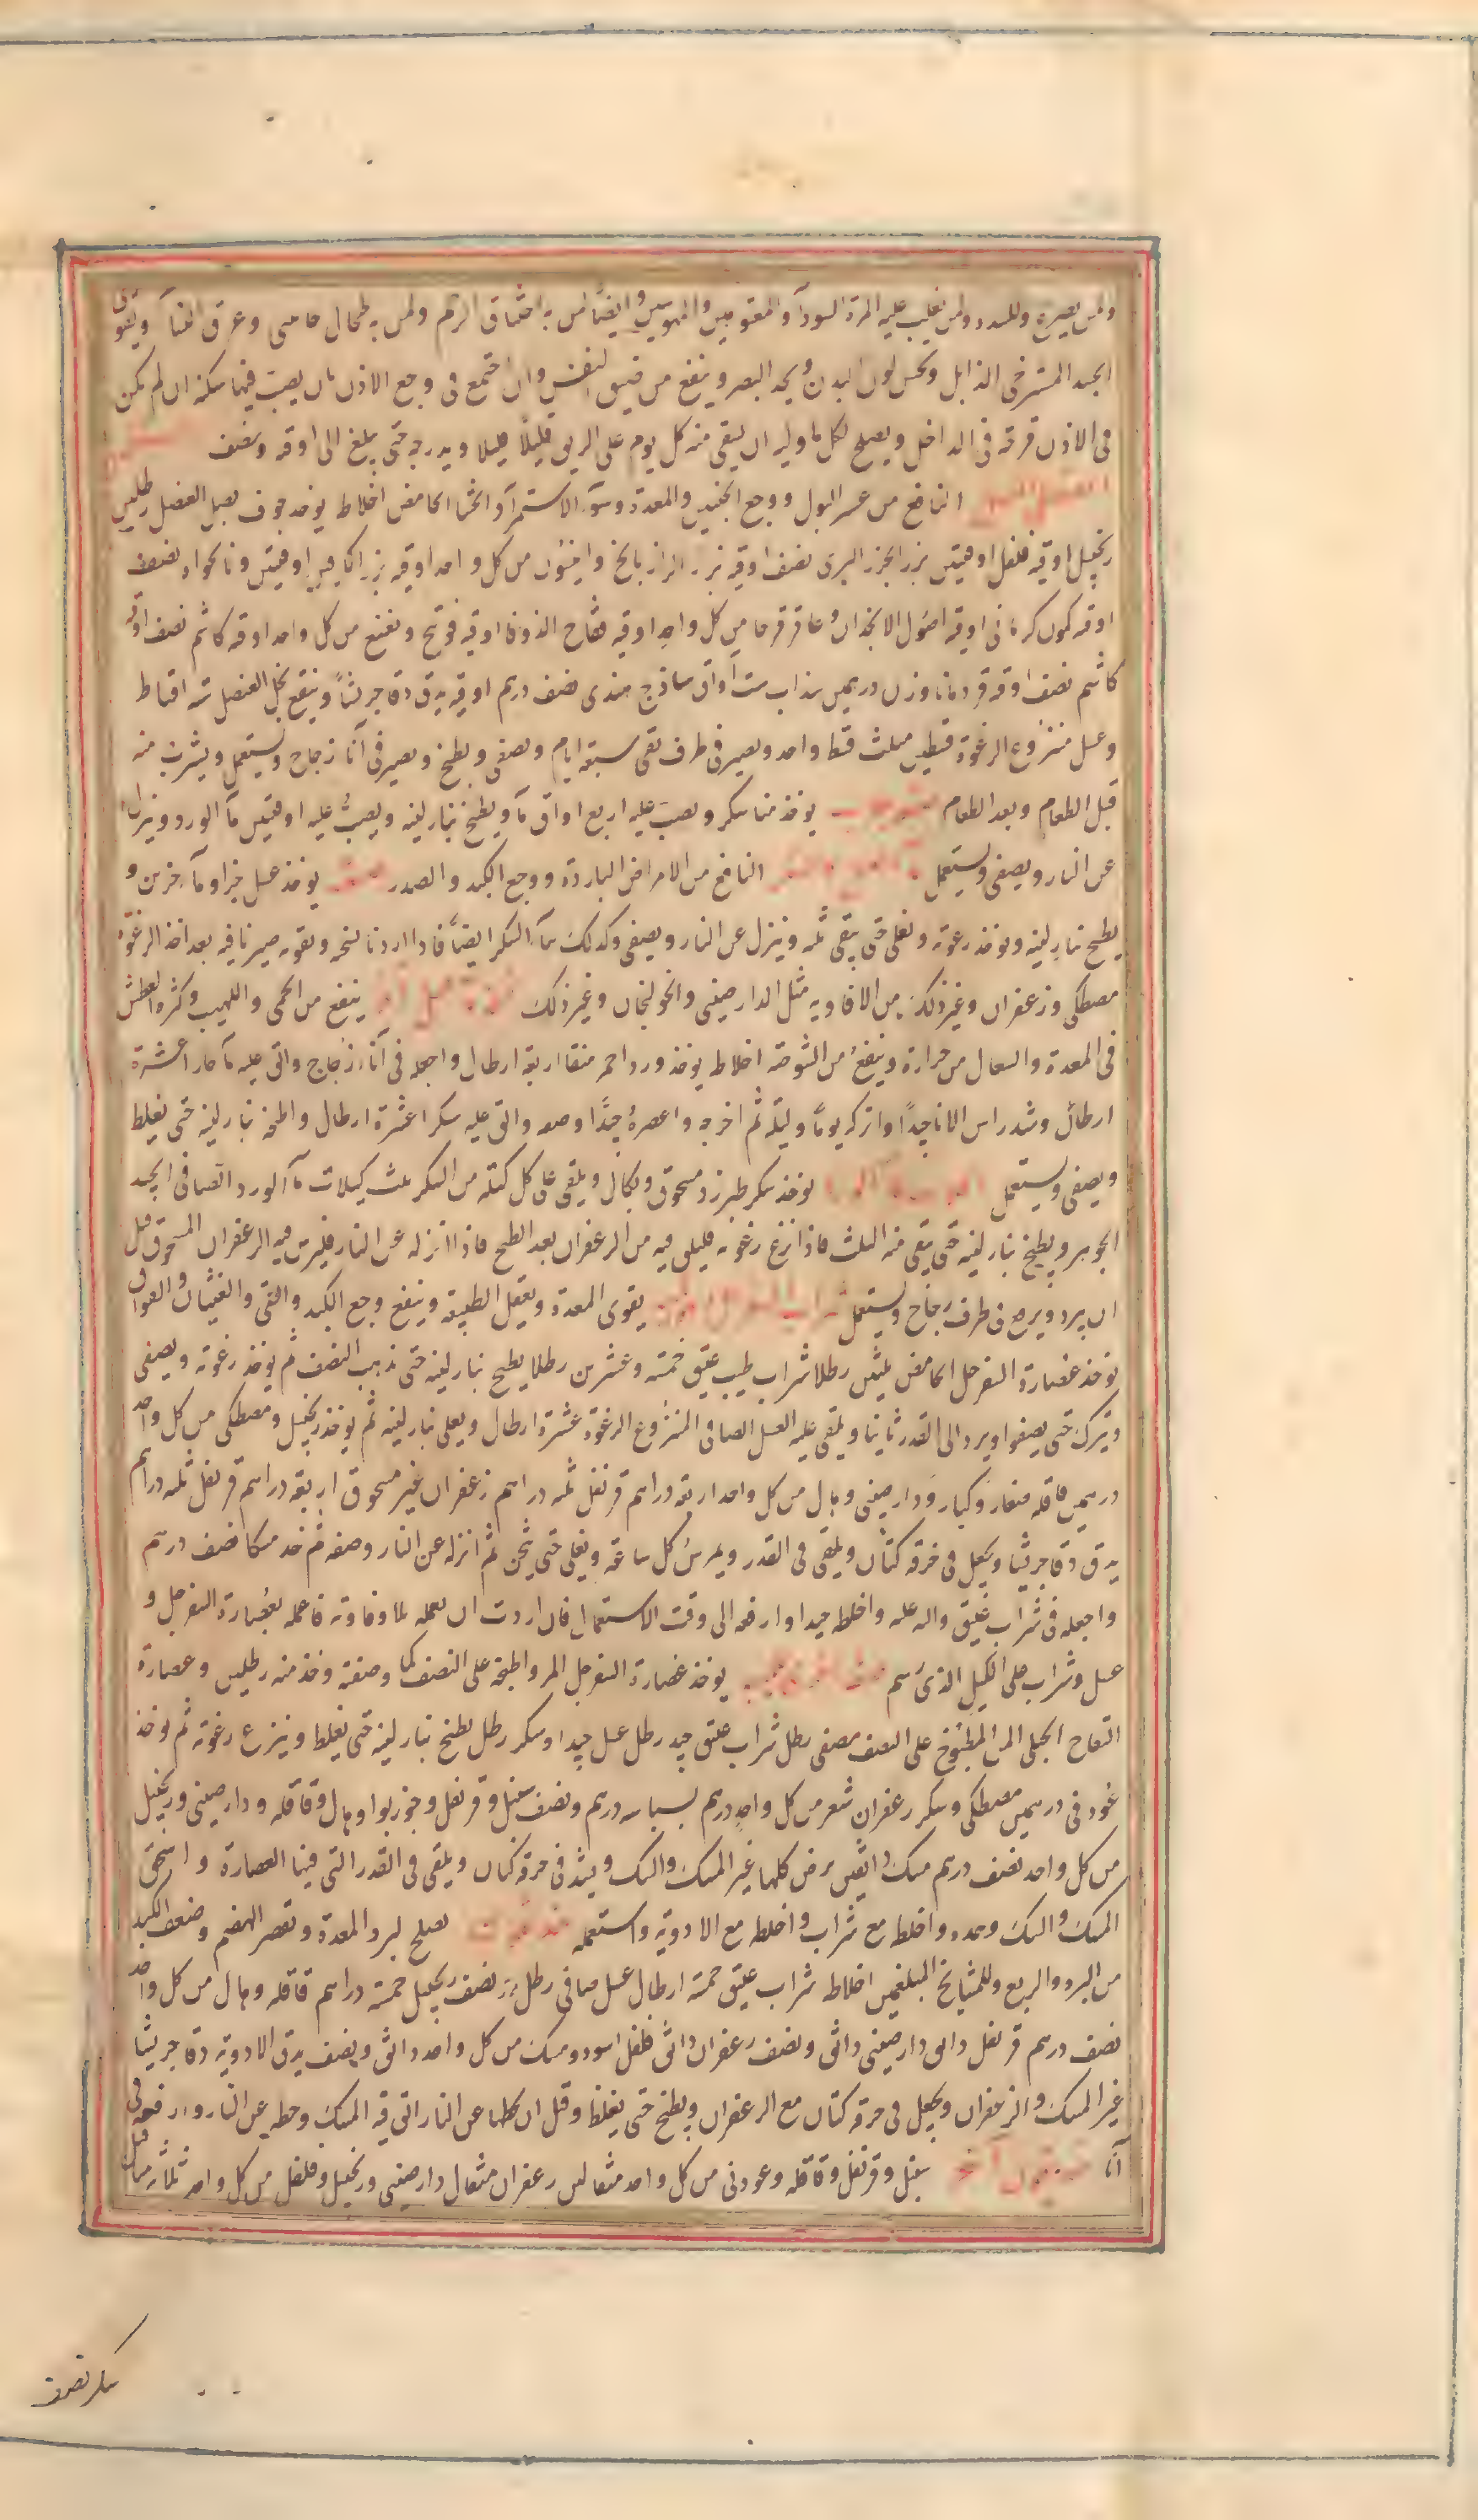 ولمن يصرع وللسدد ولمن يغلب عليه المرة السودآ والمفلوجين والمهوسين وايضًا لمن به اختناق الرحم ولمن به طحال جاسى وعرق النسآ ويقوى
الجسد المسترخى الذابل ويحسن لون البدن ويحد البصر وينفع من ضيق النفس وان اجتمع فى وجع الاذن بان يصب فيها سكن ان لم يكن
فى الاذن قرحة فى الداخل ويصلح لكل ما وليه ان يسقى منه كل يوم على الريق قليلًا قليلا ويدرجه حتى يبلغ الى اوقيه ونصف
النافع من عسر البول ووجع الجنبين والمعدة وسوء الاستمرآ والجشا الحامض اخلاط يوخذ جوف بصل العنصل رطلين
زنجبيل اوقيه فلفل اوقيتين بزر الجزر البرى نصف اوقيه بزر الرازيانج وانيسون من كل واحد اوقيه بزر اكليل اوقيتين ونانخواه نصف
اوقيه كمون كرمانى اوقيه اصول الانجدان وعاقرقرحا من كل واحد اوقيه فقاح الذوفا اوقيه فوتنج ونعنع من كل واحد اوقيه كاشم نصف اوقيه
كاشم نصف اوقيه قردمانا وزن درهمين سذاب ست اواق ساذج هندى نصف درهم اوقيه يدق دقا جريشًا وينقع بخل العنصل ستة اقساط
وعسل منزوع الرغوة قسطين مثلث قسطا واحد ويصير فى ظرف نقى سبعة ايام ويصفى ويطبخ ويصير فى آنا زجاج ويستعمل ويشرب منه
قبل الطعام وبعد الطعام يوخذ منا سكر ويصب عليه اربع اواق مآ ويطبخ بنار لينه ويصب عليه اوقيتين مآ الورد وينزل
عن النار ويصفى ويستعمل النافع من الامراض الباردة ووجع الكبد والصدر يوخذ عسل جزا ومآء جزين و
يطبخ بنار لينه ويوخذ رغوته ويغلى حتى يبقى ثلثه وينزل عن النار ويصفى وكذلك مآ السكر ايضًا فاذا اردنا نسخه وتقويه صيرنا فيه بعد اخذ الرغوة
مصطكى وزعفران وغير ذلك من الافاويه مثل الدارصينى والخولنجان وغير ذلك ينفع من الحمى واللهيب وكثرة العطش
فى المعدة والسعال من حرارة وينفع من الشوصة اخلاط يوخذ ورد احمر منقا اربعة ارطال واجعله فى آناء زجاج والق عليه مآ حار اعشرة
ارطال وشد راس الانا جيداً واتركه يومًا وليلة ثم اخرجه واعصره جيًدا وصفه والق عليه سكرا عشرة ارطال واطبخه بنار لينه حتى يغلط
ويصفى ويستعمل يوخذ سكر طبرزد مسحوق ويكال ويلقى على كل كيلة من السكر ثلث كيلات مآ الورد الصافى الجيد
الجوهر ويطبخ بنار لينه حتى يبقى منه الثلث فاذا نزع رغوته فليلق فيه من الزعفران بعد الطبخ فاذا انزله عن النار فليمرس فيه الزعفران المسحوق قبل
ان يبرد ويرفع فى ظرف زجاج ويستعمل يقوى المعدة ويعقل الطبيعة وينفع وجع الكبد والقى والغثيان والفواق
يوخذ عصارة السفرجل الحامض ثلثين رطلا شراب طيب عتيق خمسة وعشرين رطلا يطبخ بنار لينه حتى يذهب النصف ثم يوخذ رغوته ويصفى
ويترك حتى يصفوا ويرد الى القدر ثانيا ويلقى عليه العسل الصافى المنزوع الرغوة عشرة ارطال ويغلى بنار لينه ثم يوخذ زنجبيل ومصطكى من كل واحد
درهمين قاقله صغار وكبار ودارصينى وهال من كل واحد اربعة دراهم قرنفل ثلثه دراهم زعفران غير مسحوق اربعة دراهم قرنفل ثلثه دراهم
يدق دقا جريشا ويجعل فى خرقه كتان ويلقى فى القدر ويمرس كل ساعة ويغلى حتى يثخن ثم انزله عن النار وصفه ثم خذ مسكا نصف درهم
واجعله فى شراب عتيق واخلطه جيدا وارفعه الى وقت الاستعمال فان اردت ان تعمله بلا وفاوته فاعمله بعصارة السفرجل و
عسل وشراب على الكيل الذى رسم يوخذ عصارة السفرجل المر واطبخه على النصف كما وصفته وخذ منه رطلين وعصارة
التفاح الجبلى المز المطبوخ على النصف مصفى رطل شراب عتيق جيد رطل عسل جيد اوسكر رطل يطبخ بنار لينه حتى يغلظ وينزع رغوته ثم يوخذ
عود نى درهمين مصطكى وسكر زعفران شعر من كل واحد درهم بسباسه درهم ونصف سنبل وقرنفل وجوز بوا وهال وقاقله ودارصينى وزنجبيل
من كل واحد نصف درهم مسك دانقين يرض كلها غير المسك والسك ويشد فى خرقة كتان ويلقى فى القدر التى فيها العصارة واسحق
المسك والسك وحده واخلط مع شراب واخلطه مع الادوية واستعمله يصلح لبرد المعدة وتقصر الهضم وضعف الكبد
من البرد والريح وللمشايخ المبلغمين اخلاطه شراب عتيق خمسة ارطال عسل صافى رطل ونصف زنجبيل خمسة دراهم قاقله وهال من كل واحد
نصف درهم قرنفل دانق دارصينى دانق ونصف زعفران دانق فلفل اسود ومسك من كل واحد دانق ونصف يدق الادوية دقا جريشا
غير المسك والزعفران ويجعل فى خرقة كتان مع الزعفران ويطبخ حتى يغلظ وقبل ان تحطها عن النار القى فيه المسك وحطه عن النار وارفعه فى
آنا سنبل وقرنفل وقاقله وعود نى من كل واحد مثقالين زعفران مثقال دارصينى وزنجبيل وفلفل من كل واحد ثلثة
سكر نصف